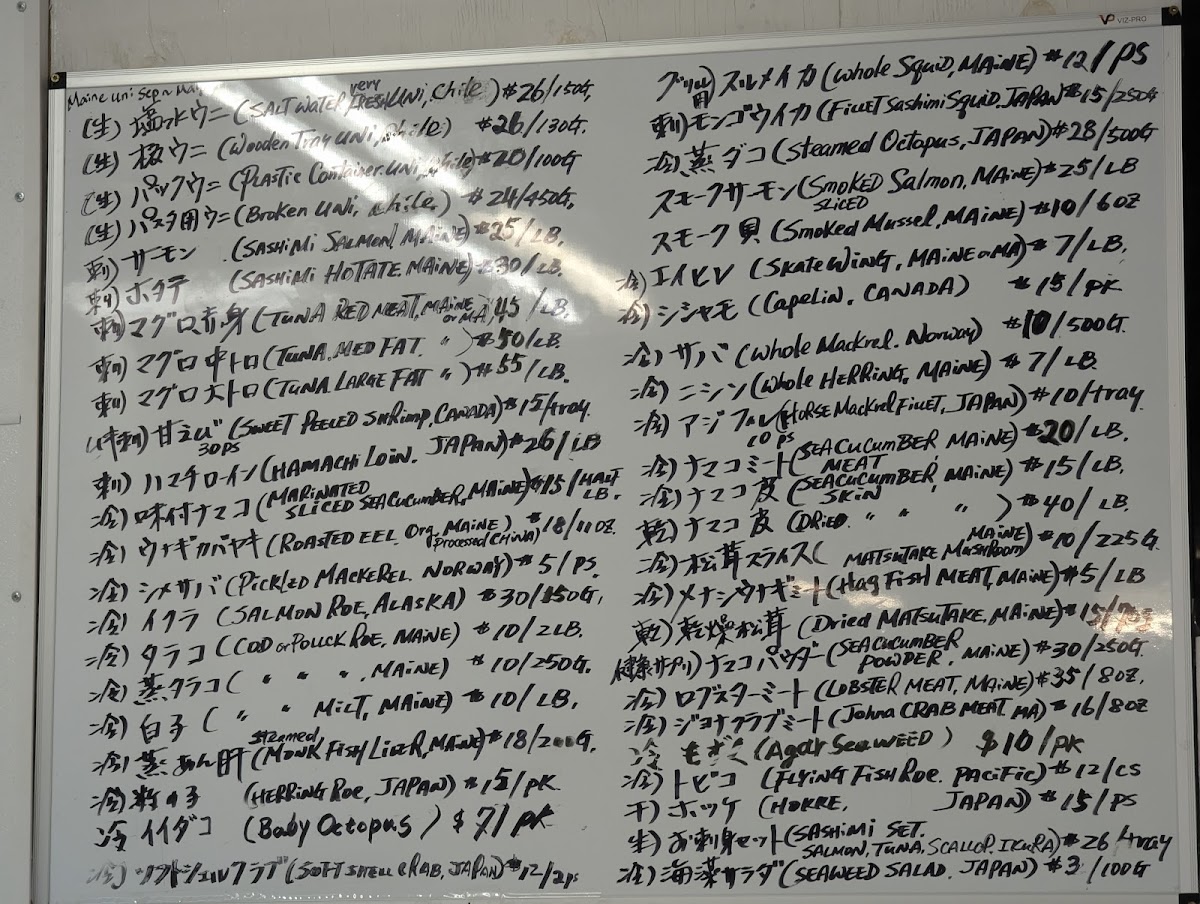 VP VIZ-PRO
Maine uni Sep~Mar
(生) 塩水ウニ (SALT WATER very FRESH UNI, Chile) $26/150G
(生) 板ウニ (Wooden Tray UNI, Chile) $26/130G.
(生) パックウニ (PLASTIC Container UNI, Chile) $20/100G
(生) パスタ用ウニ (Broken UNI, Chile) $24/450G,
刺) サーモン (SASHIMI SALMON, MAINE) $25/LB,
刺) ホタテ (SASHIMI HOTATE MAINE) $30/LB,
刺) マグロ赤身 (TUNA RED MEAT, MAINE or MA) 45/LB.
刺) マグロ中トロ (TUNA, MED FAT. 〃) $50/LB.
刺) マグロ大トロ (TUNA LARGE FAT 〃) $55/LB.
刺) 甘えび (SWEET PEELED SHRIMP, CANADA) $15/tray.
30PS
刺) ハマチロイン (HAMACHI LOIN. JAPAN) $26/LB
冷) 味付ナマコ (MARINATED SLICED SEACUCUMBER, MAINE) $15/HALF LB.
冷) ウナギカバヤキ (ROASTED EEL. Org. MAINE Processed CHINA) $18/11OZ.
冷) シメサバ (PICKLED MACKEREL. NORWAY) $5/PS.
冷) イクラ (SALMON ROE, ALASKA) $30/250G,
冷) タラコ (COD or POLLCK ROE, MAINE) $10/2LB.
冷) 蒸タラコ (〃 〃 〃, MAINE) $10/250G.
冷) 白子 (〃 〃 MILT, MAINE) $10/LB,
冷) 蒸あん肝 (steamed MONK FISH LIVER, MAINE) $18/200G.
冷) 数の子 (HERRING ROE, JAPAN) $15/PK
冷 イイダコ (Baby Octopus) $7/PK
冷) ソフトシェルクラブ (SOFT SHELL CRAB, JAPAN) $12/2PS
グリル用) スルメイカ (Whole Squid, MAINE) $12/PS
刺) モンゴウイカ (FILLET SASHIMI SQUID, JAPAN $15/250G
冷) 蒸ダコ (Steamed Octopus, JAPAN) $28/500G
スモークサーモン (SMOKED Salmon, MAINE) $25/LB
SLICED
スモーク貝 (Smoked Mussel, MAINE) $10/6OZ
冷) エイヒレ (Skate WING, MAINE or MA) $7/LB,
冷) シシャモ (Capelin, CANADA) $15/PK
冷) サバ (Whole Mackrel. Norway) $10/500G.
冷) ニシン (Whole HERRING, MAINE) $7/LB
冷) アジフィレ (HORSE Mackrel FILLET, JAPAN) $10/tray
10PS
冷) ナマコミート (SEACUCUMBER MEAT MAINE) $20/LB.
冷) ナマコ皮 (SEACUCUMBER SKIN, MAINE) $15/LB.
乾) ナマコ皮 (DRIED. 〃 〃 〃) $40/LB.
冷) 松茸スライス (MATSUTAKE MUSHROOM MAINE) $10/225G.
冷) メナシウナギミート (Hag FISH MEAT, MAINE) $5/LB
乾) 乾燥松茸 (Dried MATSUTAKE, MAINE) $15/
健康サプリ) ナマコパウダー (SEACUCUMBER POWDER, MAINE) $30/250G.
冷) ロブスターミート (LOBSTER MEAT, MAINE) $35/8OZ.
冷) ジョナクラブミート (Johna CRAB MEAT, MA) $16/8OZ
冷 もずく (Agar SeaWEED) $10/PK
冷) トビコ (FLYING FISH ROE. PACIFIC) $12/CS
干) ホッケ (HOKKE, JAPAN) $15/PS
生) お刺身セット (SASHIMI SET. SALMON, TUNA, SCALLOP, IKURA) $26/tray
冷) 海藻サラダ (SEAWEED SALAD. JAPAN) $3/100G